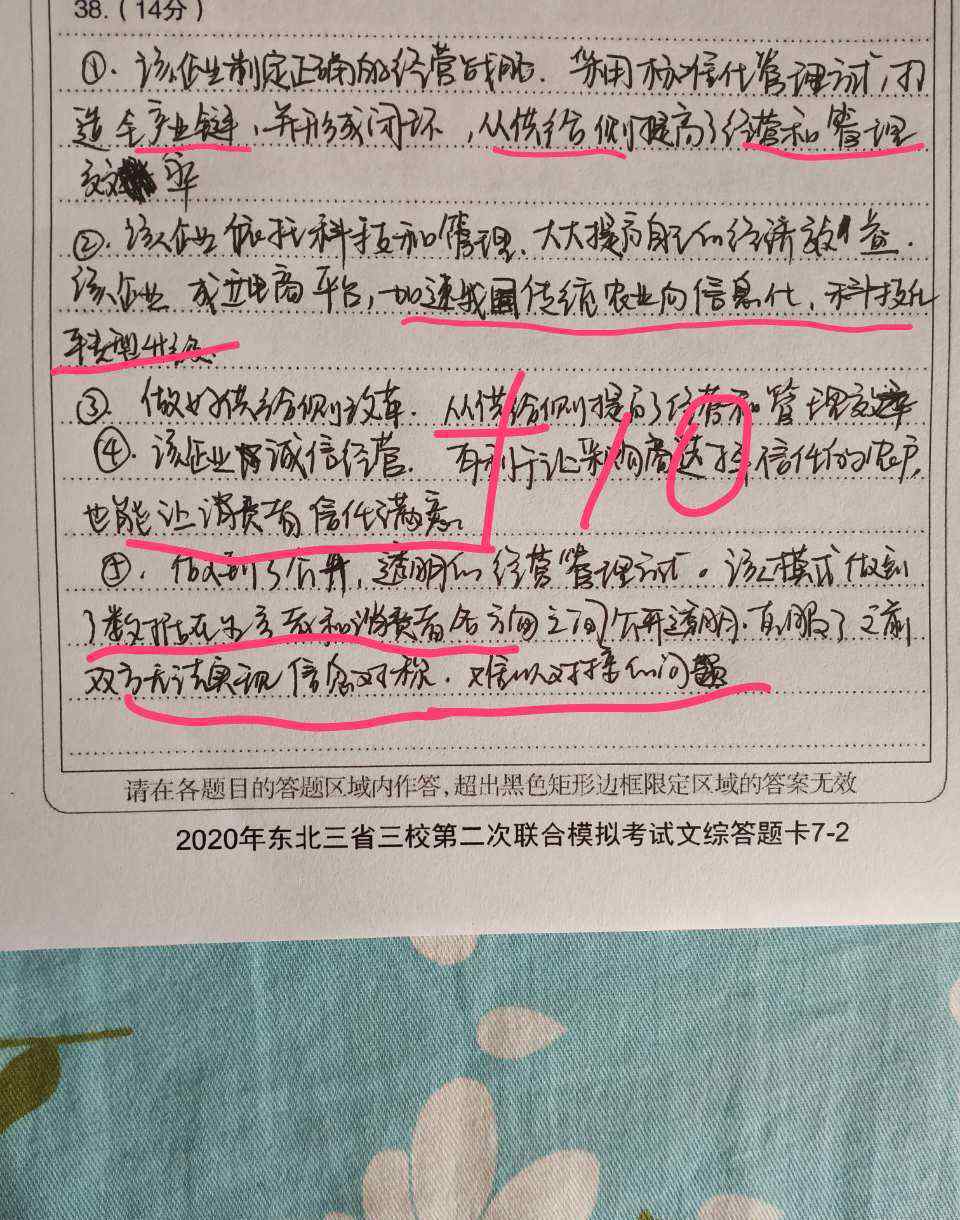 38.(14分)
①.该企业制定正确的经营战略.采用标准信代管理方式,打
造全产业链,并形成闭环,从供给侧提高了经营和管理
效率
②.该企业依托科技和管理.大大提高自己的经济效益.
该企业成立电商平台,加速我国传统农业向信息化,科技化
转型升级.
③.做好供给侧改革.从供给侧提高了经营和管理效率
④.该企业诚信经营.有利于让采购商选择信任的农户,
也能让消费者信任满意.
+10
⑤.做到了公开,透明的经营管理方式。该模式做到
了数据在生产者和消费者各方面之间公开透明.克服了之前
双方无法实现信息对称.难以对接的问题
请在各题目的答题区域内作答,超出黑色矩形边框限定区域的答案无效
2020年东北三省三校第二次联合模拟考试文综答题卡7-2